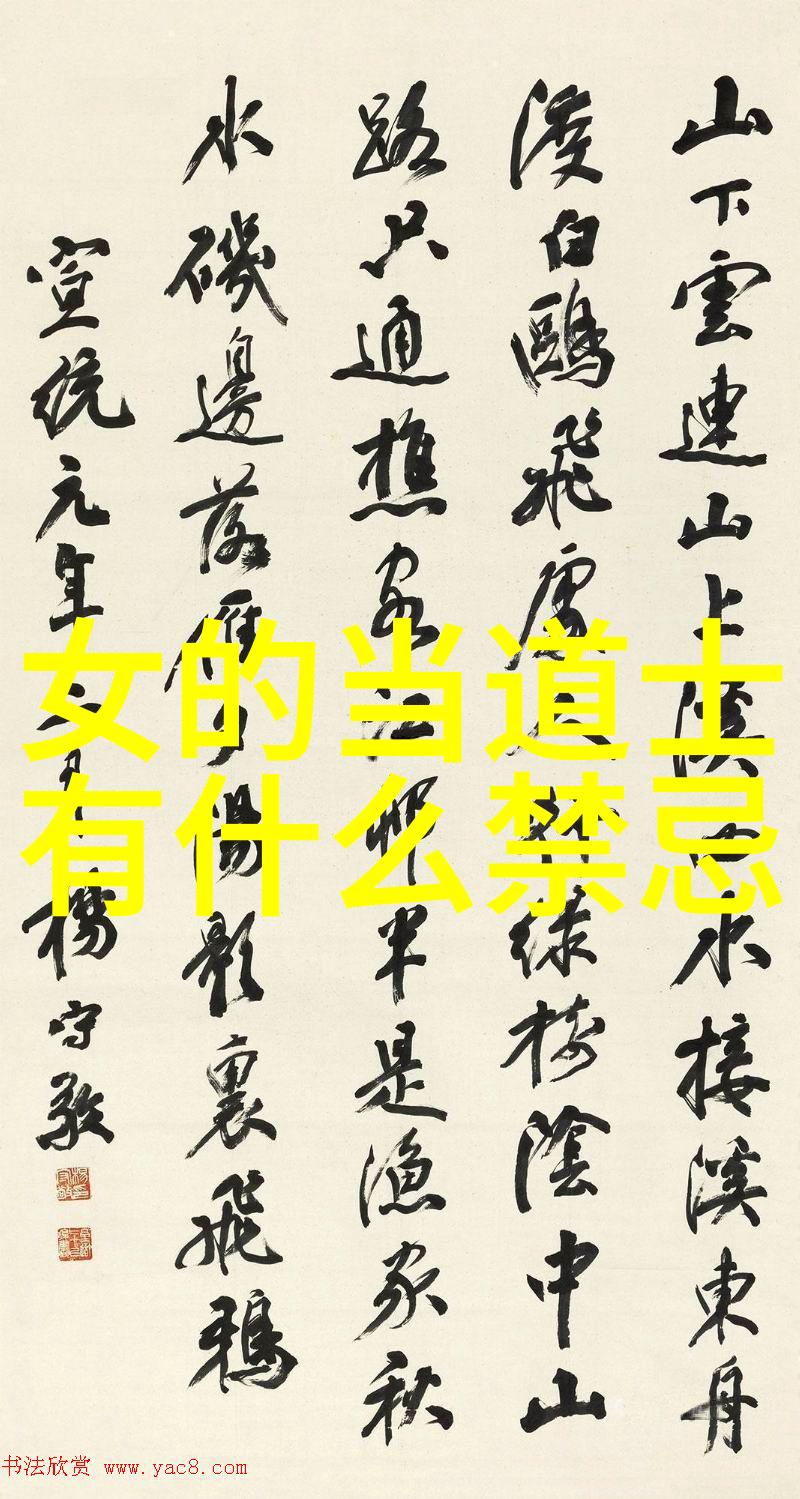 山下雲連山上溪水接溪東舟
渡白鷗飛處人綠樹陰中山
路只通樵客江邨半是漁家秋
水磯邊落雁夕陽影裏飛鴉
宣統元年楊守敬
女的当道士
有什么禁忌
书法欣赏 www.yac8.com